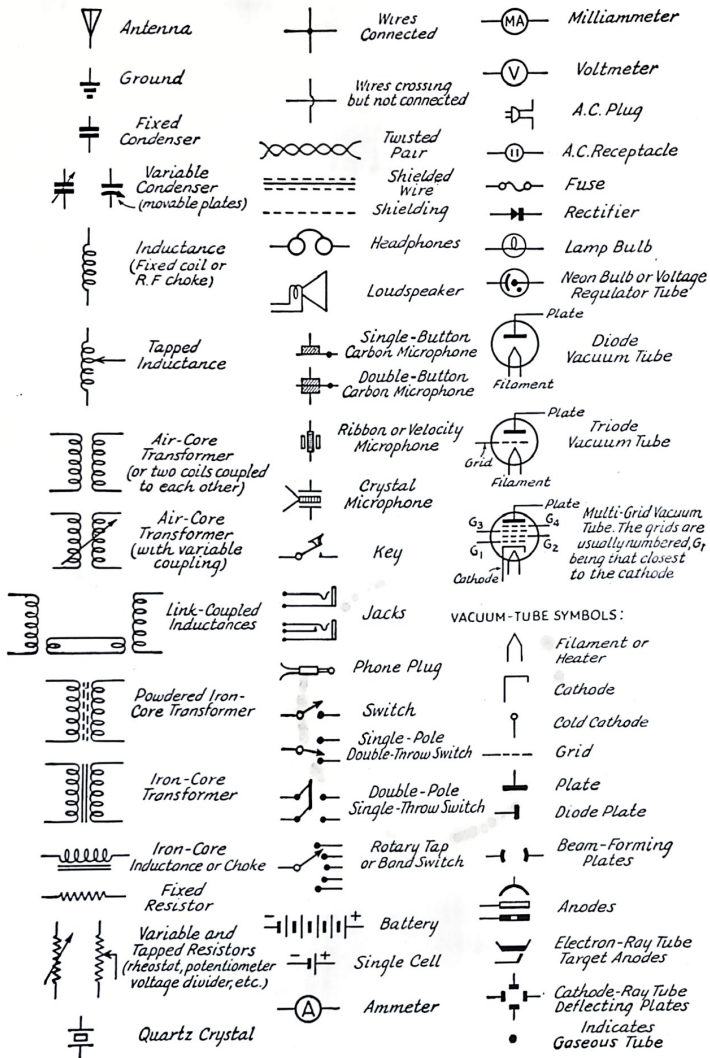 Antenna
Ground
Fixed
Condenser
Variable
Condenser
(movable plates)
Inductance
(Fixed coil or
R.F choke)
Tapped
Inductance
Air-Core
Transformer
(or two coils coupled
to each other)
Air-Core
Transformer
(with variable
coupling)
Link-Coupled
Inductances
Powdered Iron-
Core Transformer
Iron-Core
Transformer
Iron-Core
Inductance or Choke
Fixed
Resistor
Variable and
Tapped Resistors
(rheostat, potentiometer
voltage divider, etc.)
Quartz Crystal
Wires
Connected
Wires crossing
but not connected
Twisted
Pair
Shielded
Wire
Shielding
Headphones
Loudspeaker
Single-Button
Carbon Microphone
Double-Button
Carbon Microphone
Ribbon or Velocity
Microphone
Crystal
Microphone
Key
Jacks
Phone Plug
Switch
Single-Pole
Double-Throw Switch
Double-Pole
Single-Throw Switch
Rotary Tap
or Band Switch
- + Battery
- + Single Cell
A Ammeter
MA Milliammeter
V Voltmeter
A.C. Plug
A.C. Receptacle
Fuse
Rectifier
Lamp Bulb
Neon Bulb or Voltage
Regulator Tube
Plate
Filament
Diode
Vacuum Tube
Plate
Grid
Filament
Triode
Vacuum Tube
Plate
G3 G4
G1 G2
Cathode
Multi-Grid Vacuum
Tube. The grids are
usually numbered, G1
being that closest
to the cathode
VACUUM-TUBE SYMBOLS:
Filament or
Heater
Cathode
Cold Cathode
Grid
Plate
Diode Plate
Beam-Forming
Plates
Anodes
Electron-Ray Tube
Target Anodes
Cathode-Ray Tube
Deflecting Plates
Indicates
Gaseous Tube